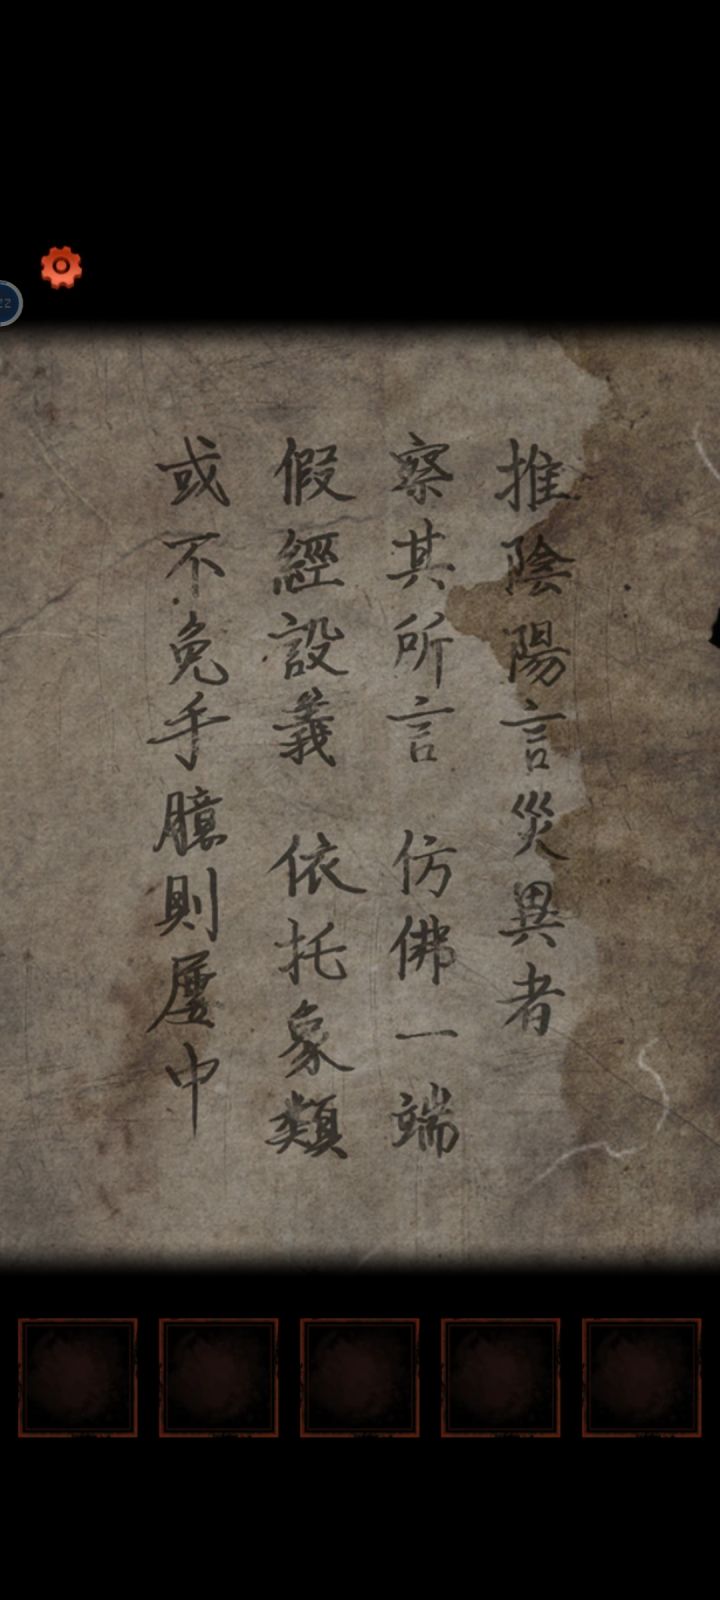 推陰陽言災異者
察其所言 仿佛一端
假經設義 依托象類
或不免手臆則屢中
22